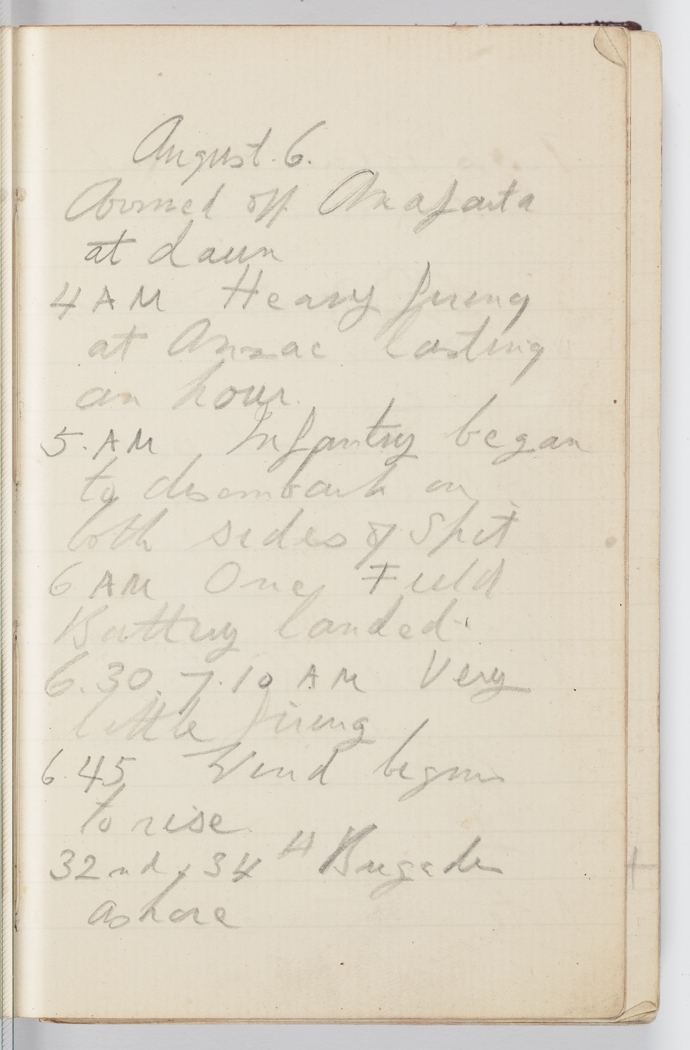 August. 6.
Arrived off Anafarta
at dawn
4 AM Heavy firing
at Anzac lasting
an hour.
5. AM Infantry began
to disembark on
both sides of Spit
6 AM One Field
Battery landed.
6.30. 7.10 AM Very
little firing
6 45 Wind begins
to rise
32nd & 34th Brigades
ashore